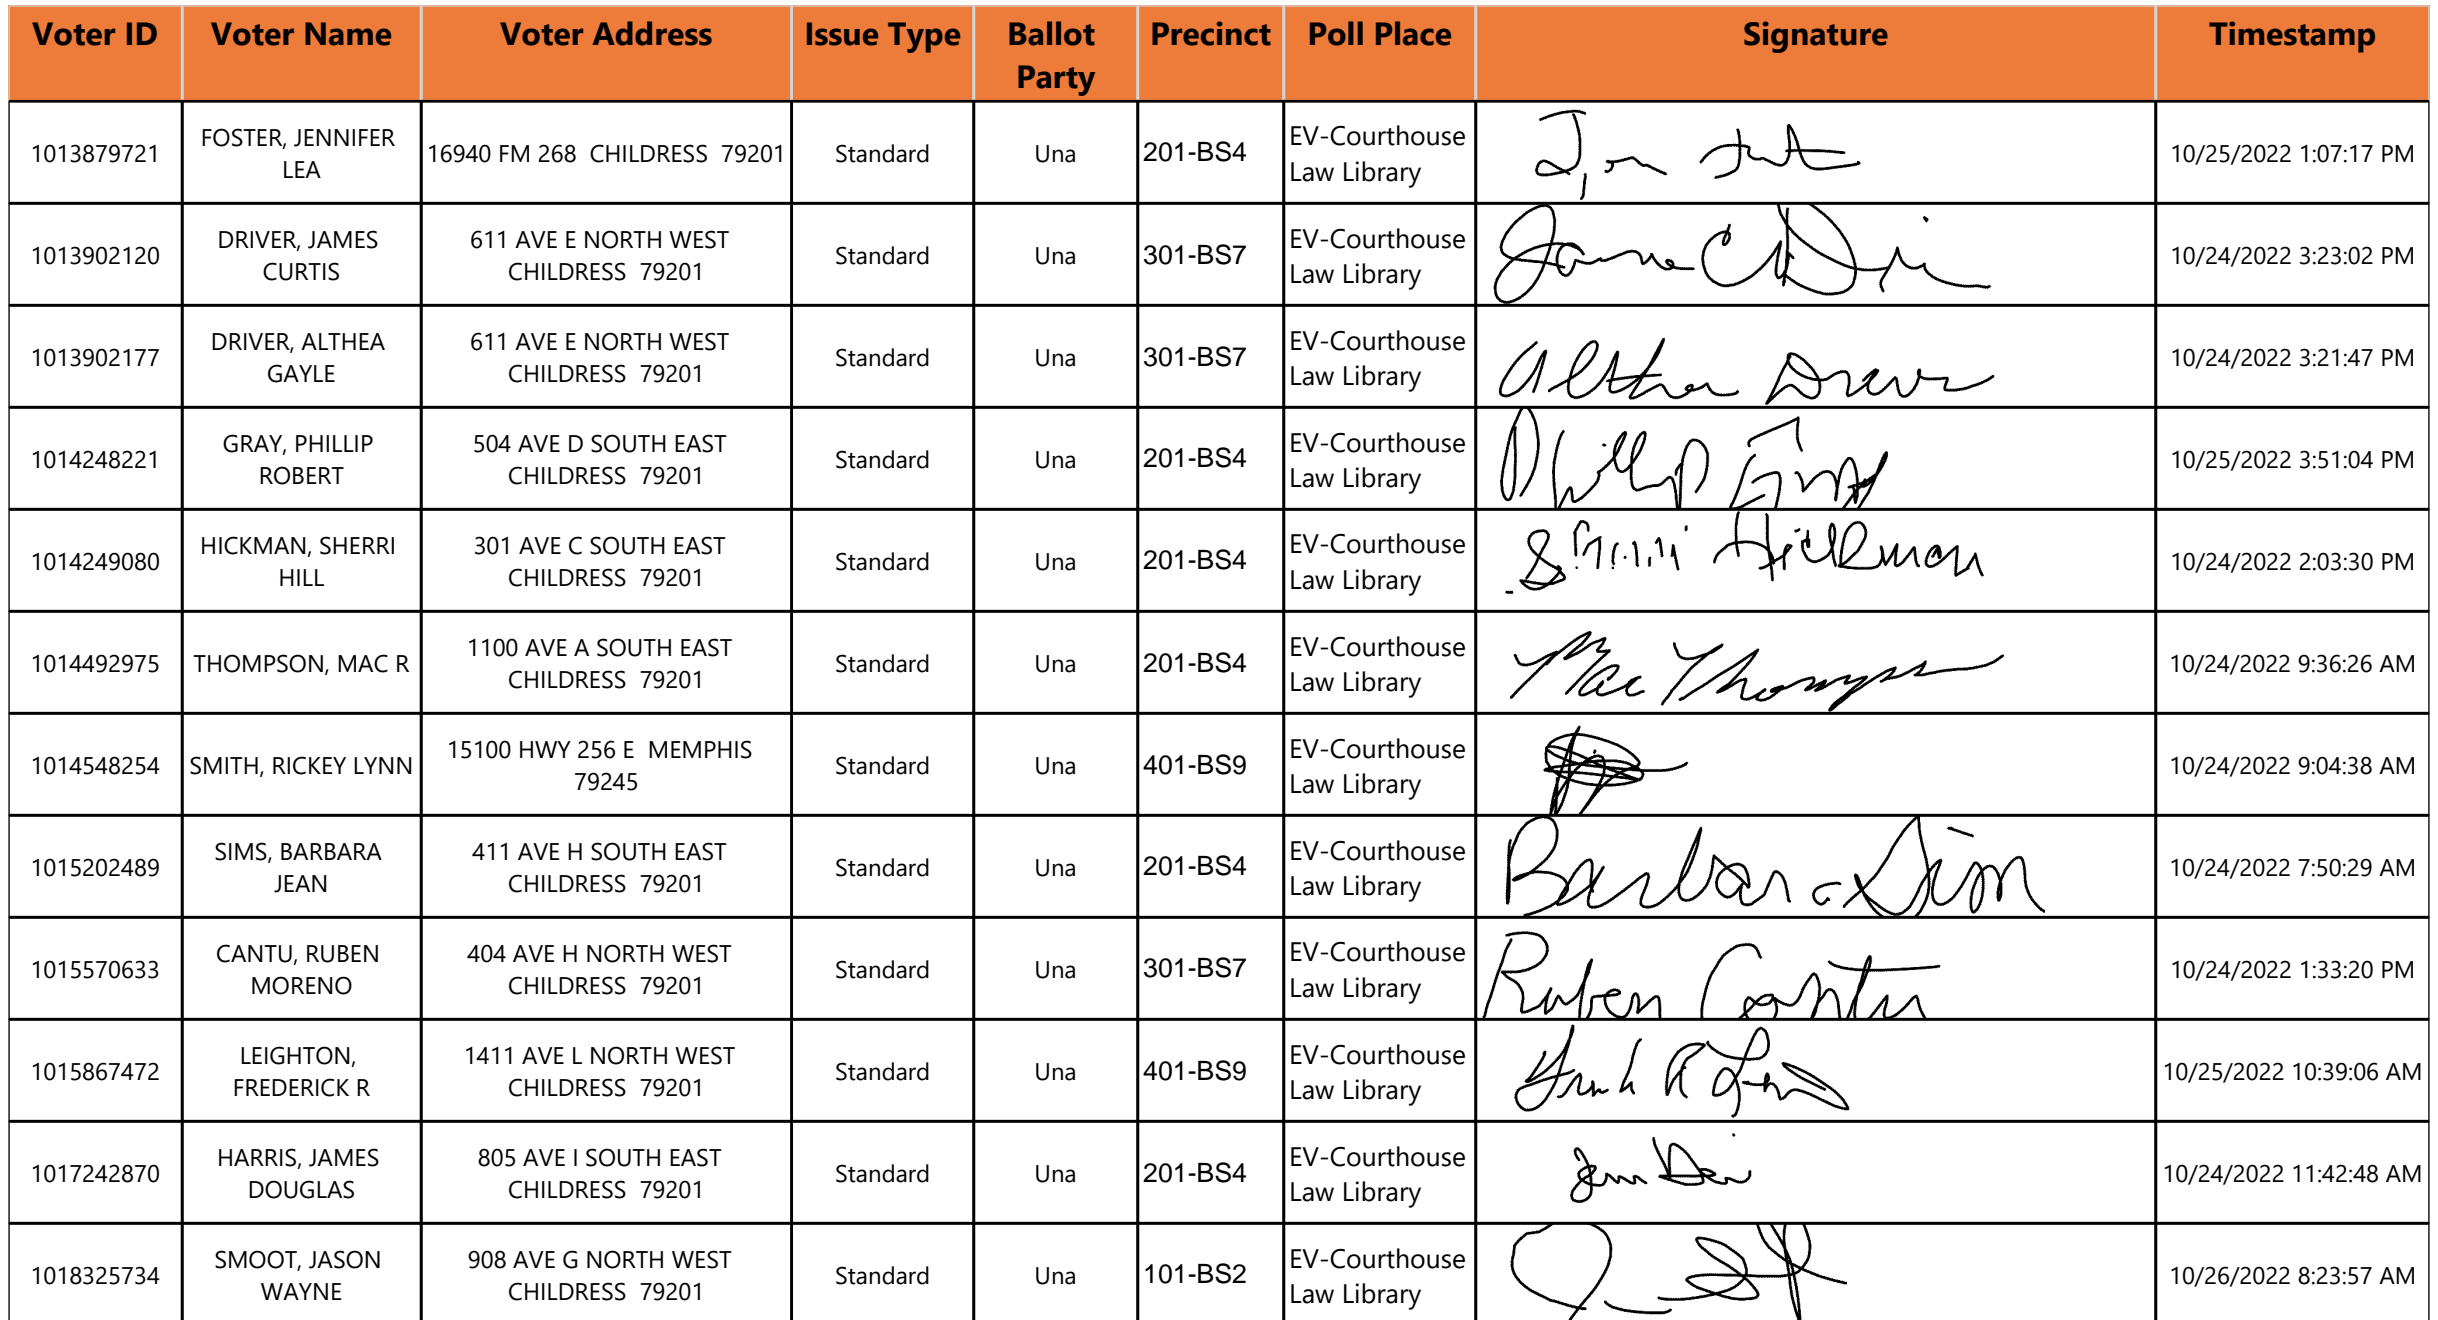 Voter ID Voter Name Voter Address Issue Type Ballot Party Precinct Poll Place Signature Timestamp
1013879721 FOSTER, JENNIFER LEA 16940 FM 268 CHILDRESS 79201 Standard Una 201-BS4 EV-Courthouse Law Library 10/25/2022 1:07:17 PM
1013902120 DRIVER, JAMES CURTIS 611 AVE E NORTH WEST CHILDRESS 79201 Standard Una 301-BS7 EV-Courthouse Law Library 10/24/2022 3:23:02 PM
1013902177 DRIVER, ALTHEA GAYLE 611 AVE E NORTH WEST CHILDRESS 79201 Standard Una 301-BS7 EV-Courthouse Law Library 10/24/2022 3:21:47 PM
1014248221 GRAY, PHILLIP ROBERT 504 AVE D SOUTH EAST CHILDRESS 79201 Standard Una 201-BS4 EV-Courthouse Law Library Phillip 10/25/2022 3:51:04 PM
1014249080 HICKMAN, SHERRI HILL 301 AVE C SOUTH EAST CHILDRESS 79201 Standard Una 201-BS4 EV-Courthouse Law Library Hickman 10/24/2022 2:03:30 PM
1014492975 THOMPSON, MAC R 1100 AVE A SOUTH EAST CHILDRESS 79201 Standard Una 201-BS4 EV-Courthouse Law Library Mac Thompson 10/24/2022 9:36:26 AM
1014548254 SMITH, RICKEY LYNN 15100 HWY 256 E MEMPHIS 79245 Standard Una 401-BS9 EV-Courthouse Law Library 10/24/2022 9:04:38 AM
1015202489 SIMS, BARBARA JEAN 411 AVE H SOUTH EAST CHILDRESS 79201 Standard Una 201-BS4 EV-Courthouse Law Library Barbara Sim 10/24/2022 7:50:29 AM
1015570633 CANTU, RUBEN MORENO 404 AVE H NORTH WEST CHILDRESS 79201 Standard Una 301-BS7 EV-Courthouse Law Library Ruben Cantu 10/24/2022 1:33:20 PM
1015867472 LEIGHTON, FREDERICK R 1411 AVE L NORTH WEST CHILDRESS 79201 Standard Una 401-BS9 EV-Courthouse Law Library 10/25/2022 10:39:06 AM
1017242870 HARRIS, JAMES DOUGLAS 805 AVE I SOUTH EAST CHILDRESS 79201 Standard Una 201-BS4 EV-Courthouse Law Library 10/24/2022 11:42:48 AM
1018325734 SMOOT, JASON WAYNE 908 AVE G NORTH WEST CHILDRESS 79201 Standard Una 101-BS2 EV-Courthouse Law Library 10/26/2022 8:23:57 AM